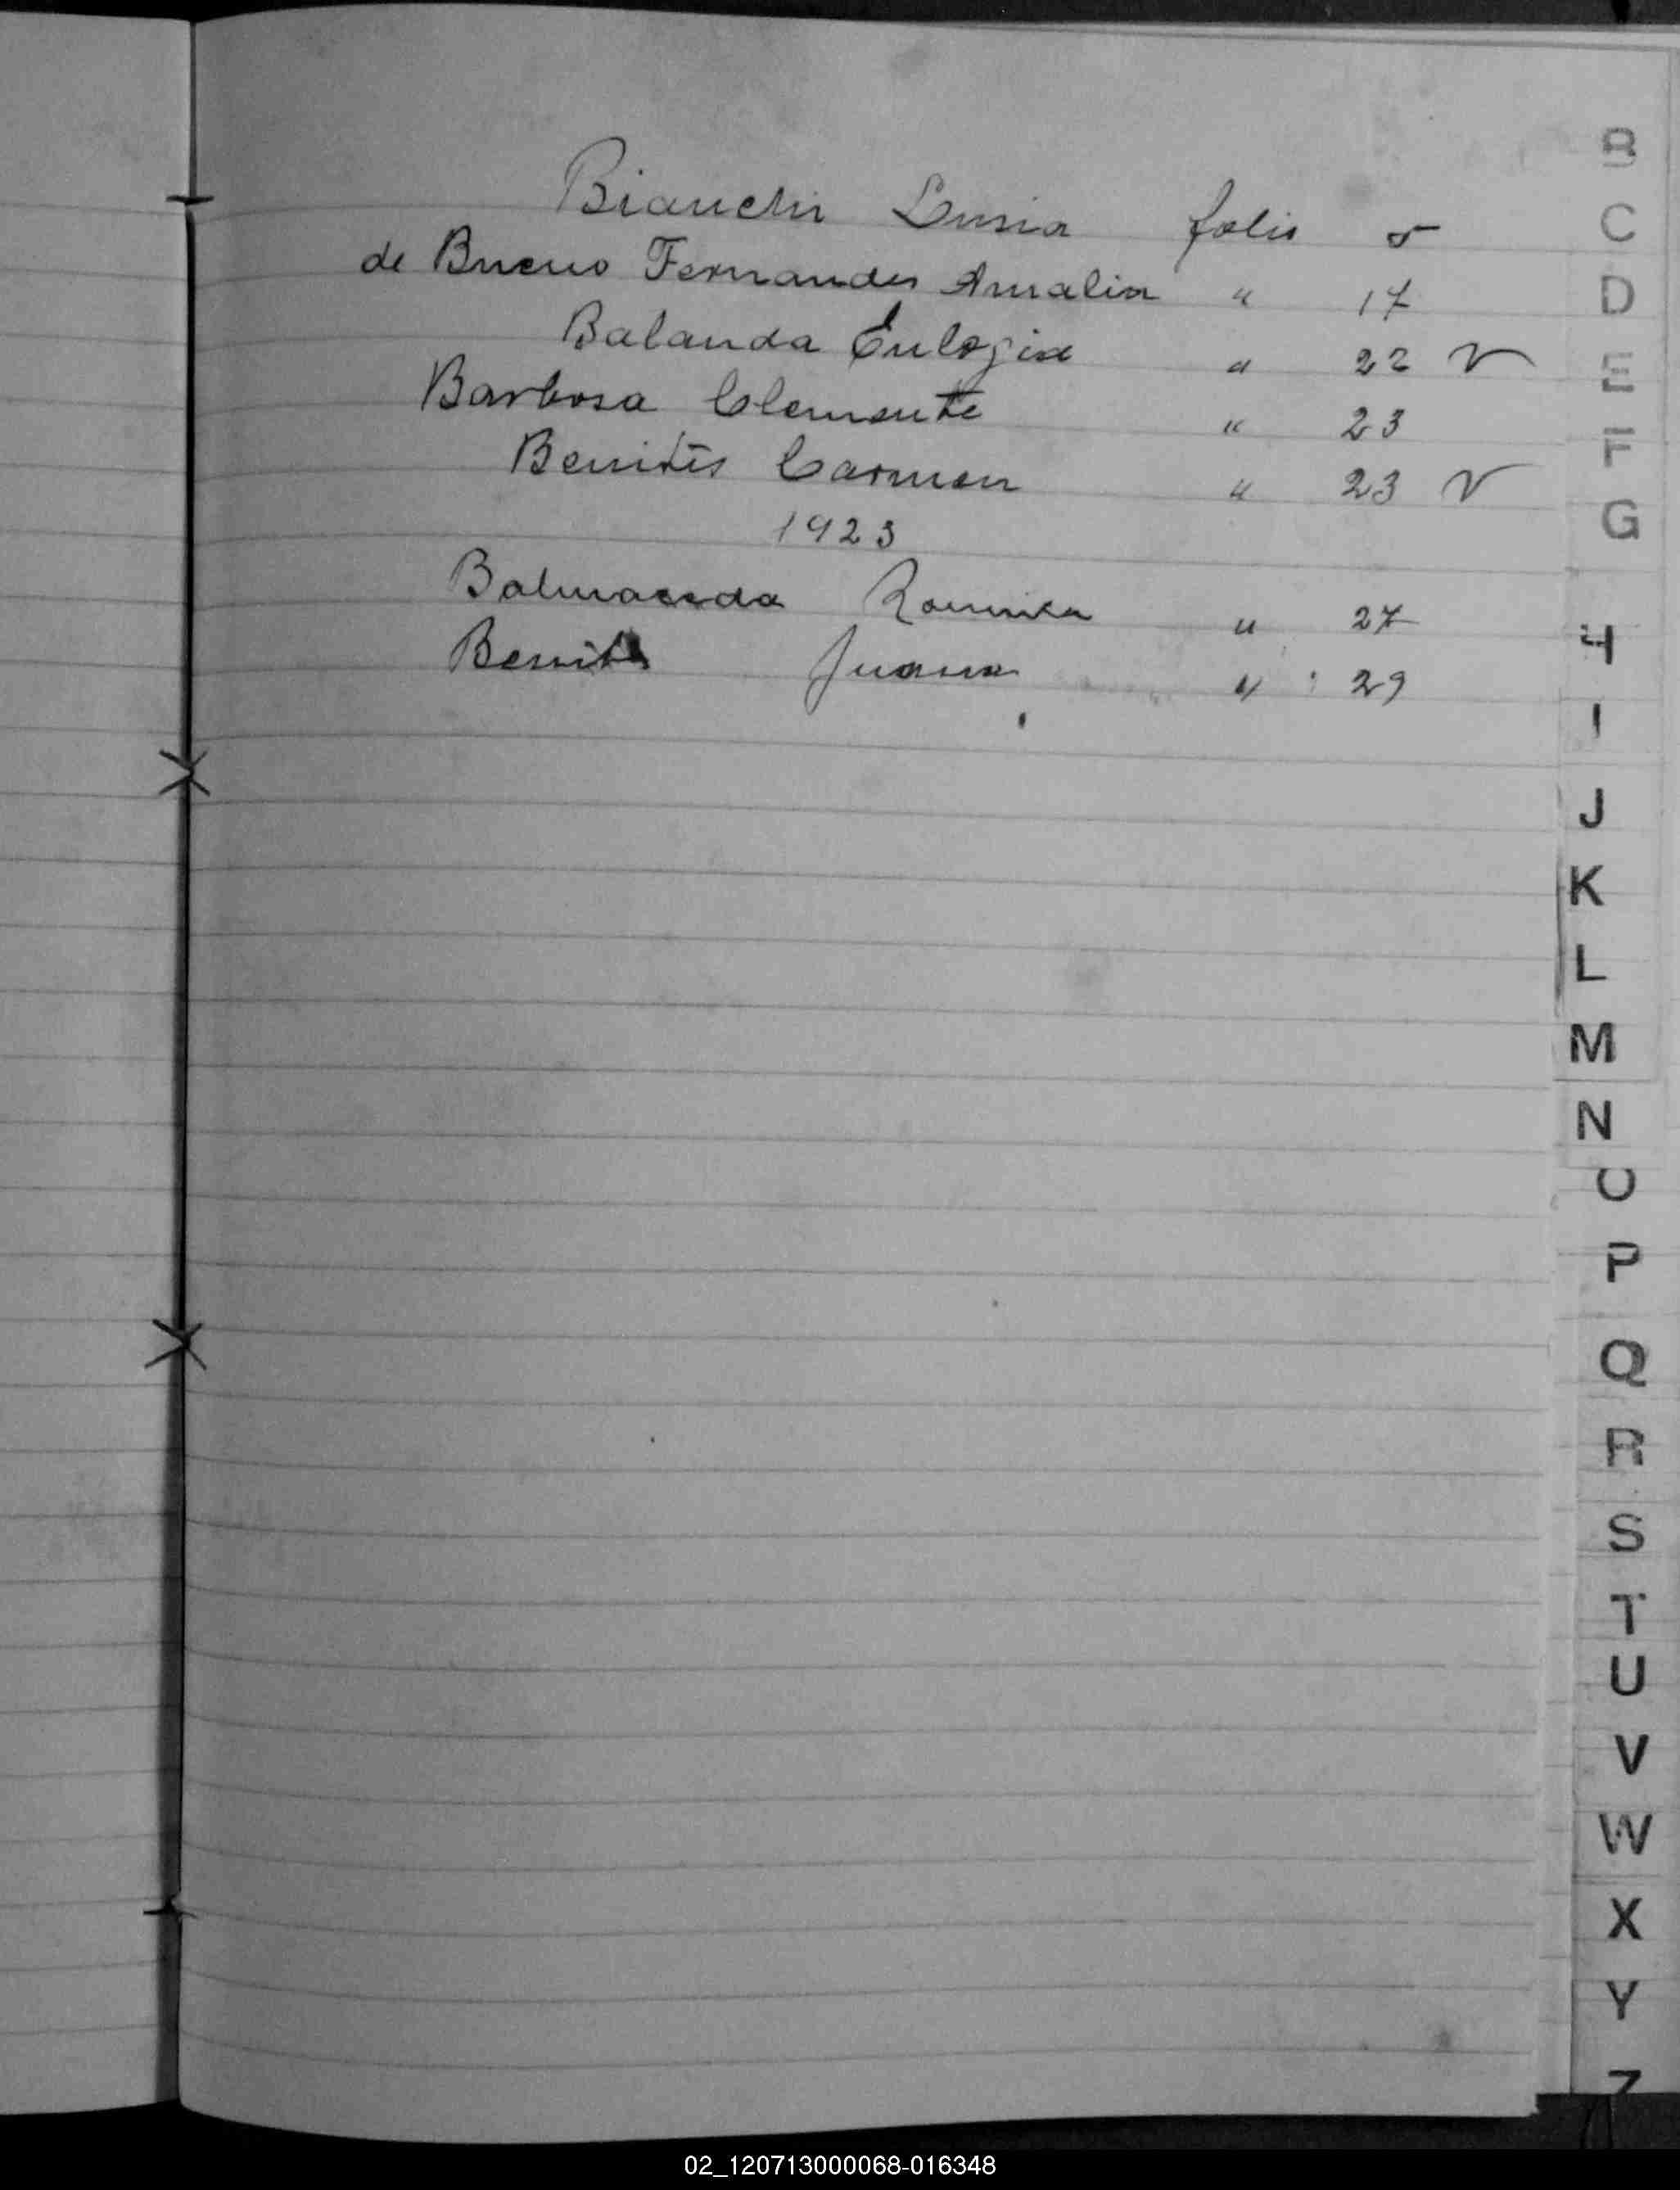 Bianchi Luisa folio 5
de Bueno Fernandes Amalia " 17
Balanda Eulogia " 22 v
Barbosa Clemente " 23
Benites Carmen " 23 v
1923
Balmaceda " 27
Benites Juana " 29
B
C
D
E
F
G
H
I
J
K
L
M
N
O
P
Q
R
S
T
U
V
W
X
Y
Z
02_120713000068-016348